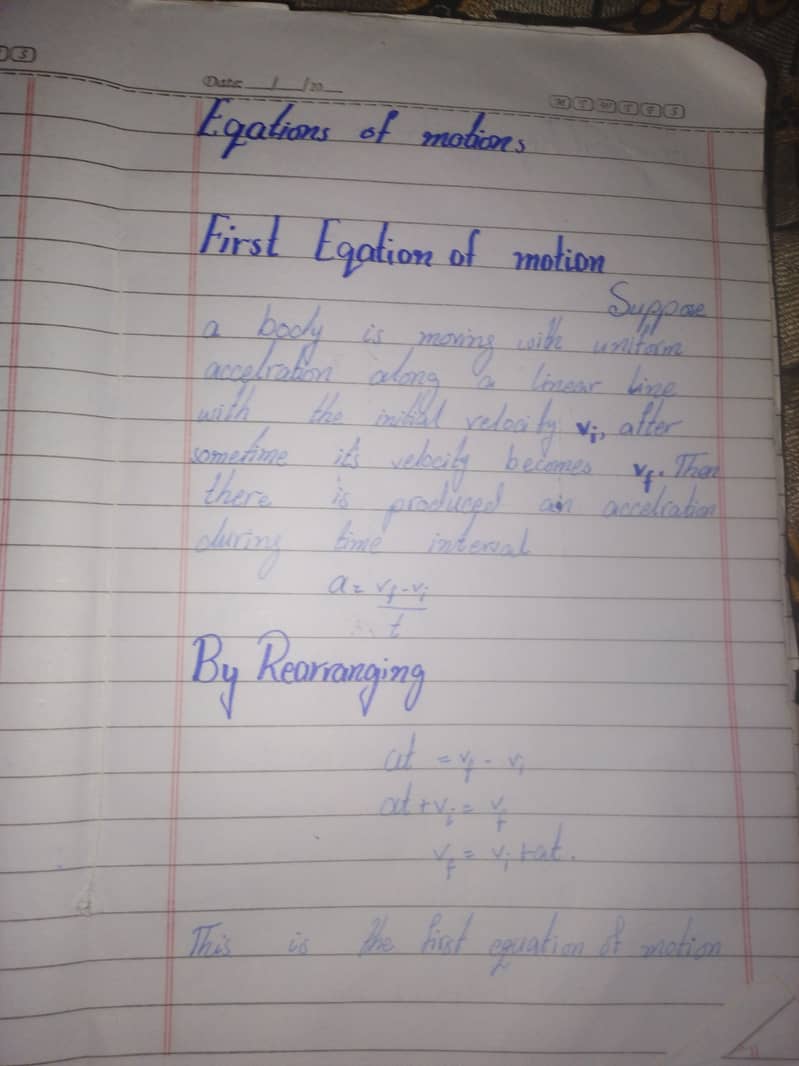 S
Date: __/__/20__
M T W T F S
Eqations of motions
First Eqation of motion
Suppose
a body is moving with uniform
accelration along a linear line
with the initial velocity vi, after
sometime it's velocity becomes vf. Then
there is produced an accelration
during time interval
a = vf - vi
t
By Rearranging
at = vf - vi
at + vi = vf
vf = vi + at.
This is the first equation of motion